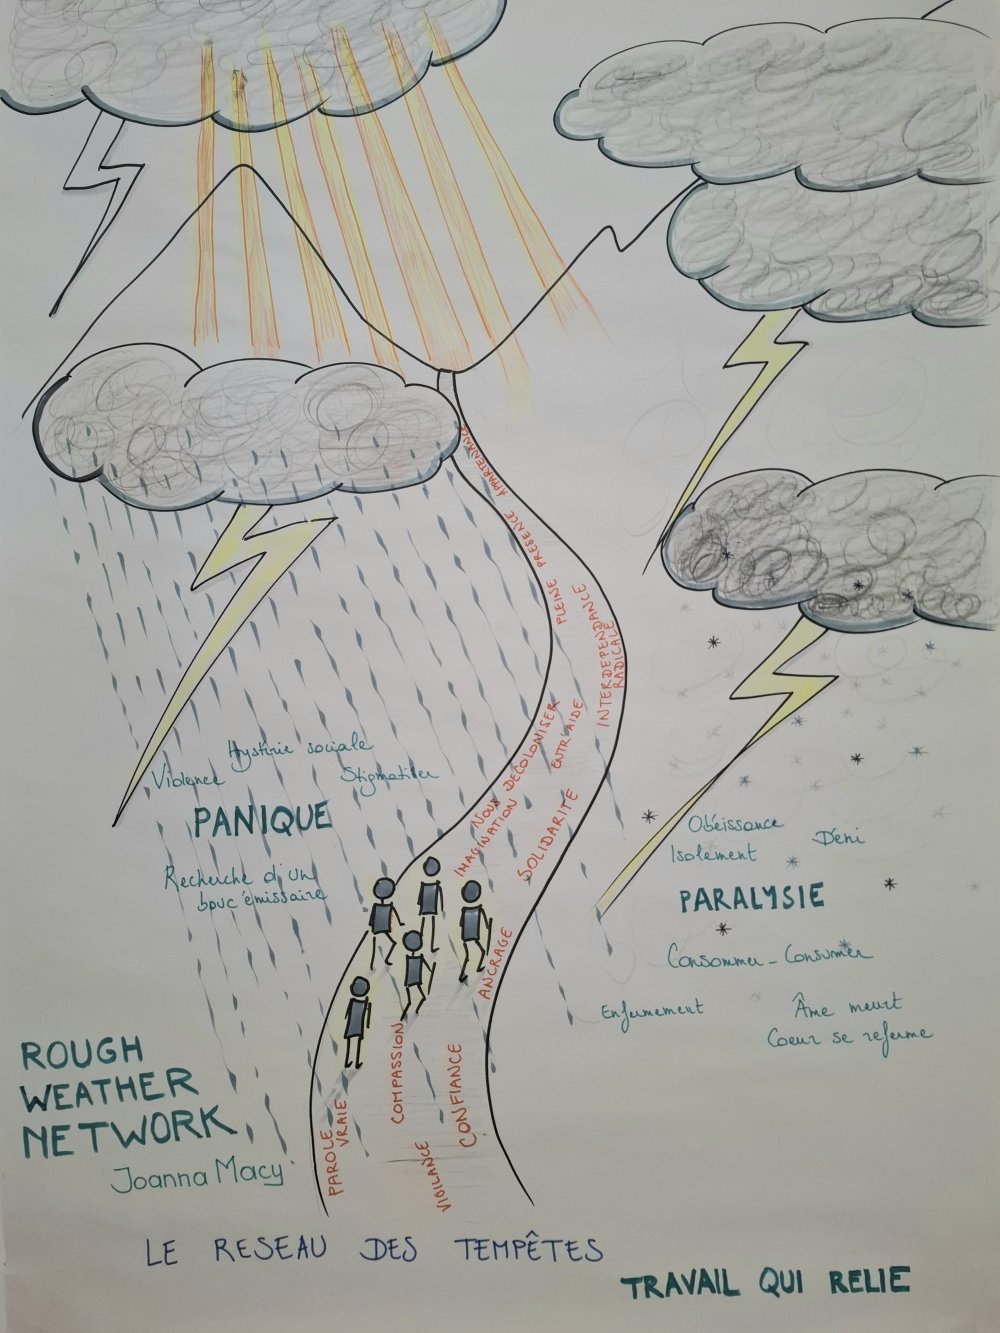 APPARTENANCE
PLEINE PRÉSENCE
INTERDEPENDANCE
RADICALE
NOUS DÉCOLONISER
ENTR'AIDE
IMAGINATION
SOLIDARITÉ
Hystérie sociale
Violence
Stigmatiser
PANIQUE
Recherche d'un
bouc émissaire
Obéissance
Déni
Isolement
PARALYSIE
Consommer - Consumer
Enfermement
Âme meurt
Coeur se referme
ANCRAGE
COMPASSION
CONFIANCE
PAROLE
VRAIE
VIGILANCE
ROUGH
WEATHER
NETWORK
Joanna Macy
LE RESEAU DES TEMPÊTES
TRAVAIL QUI RELIE